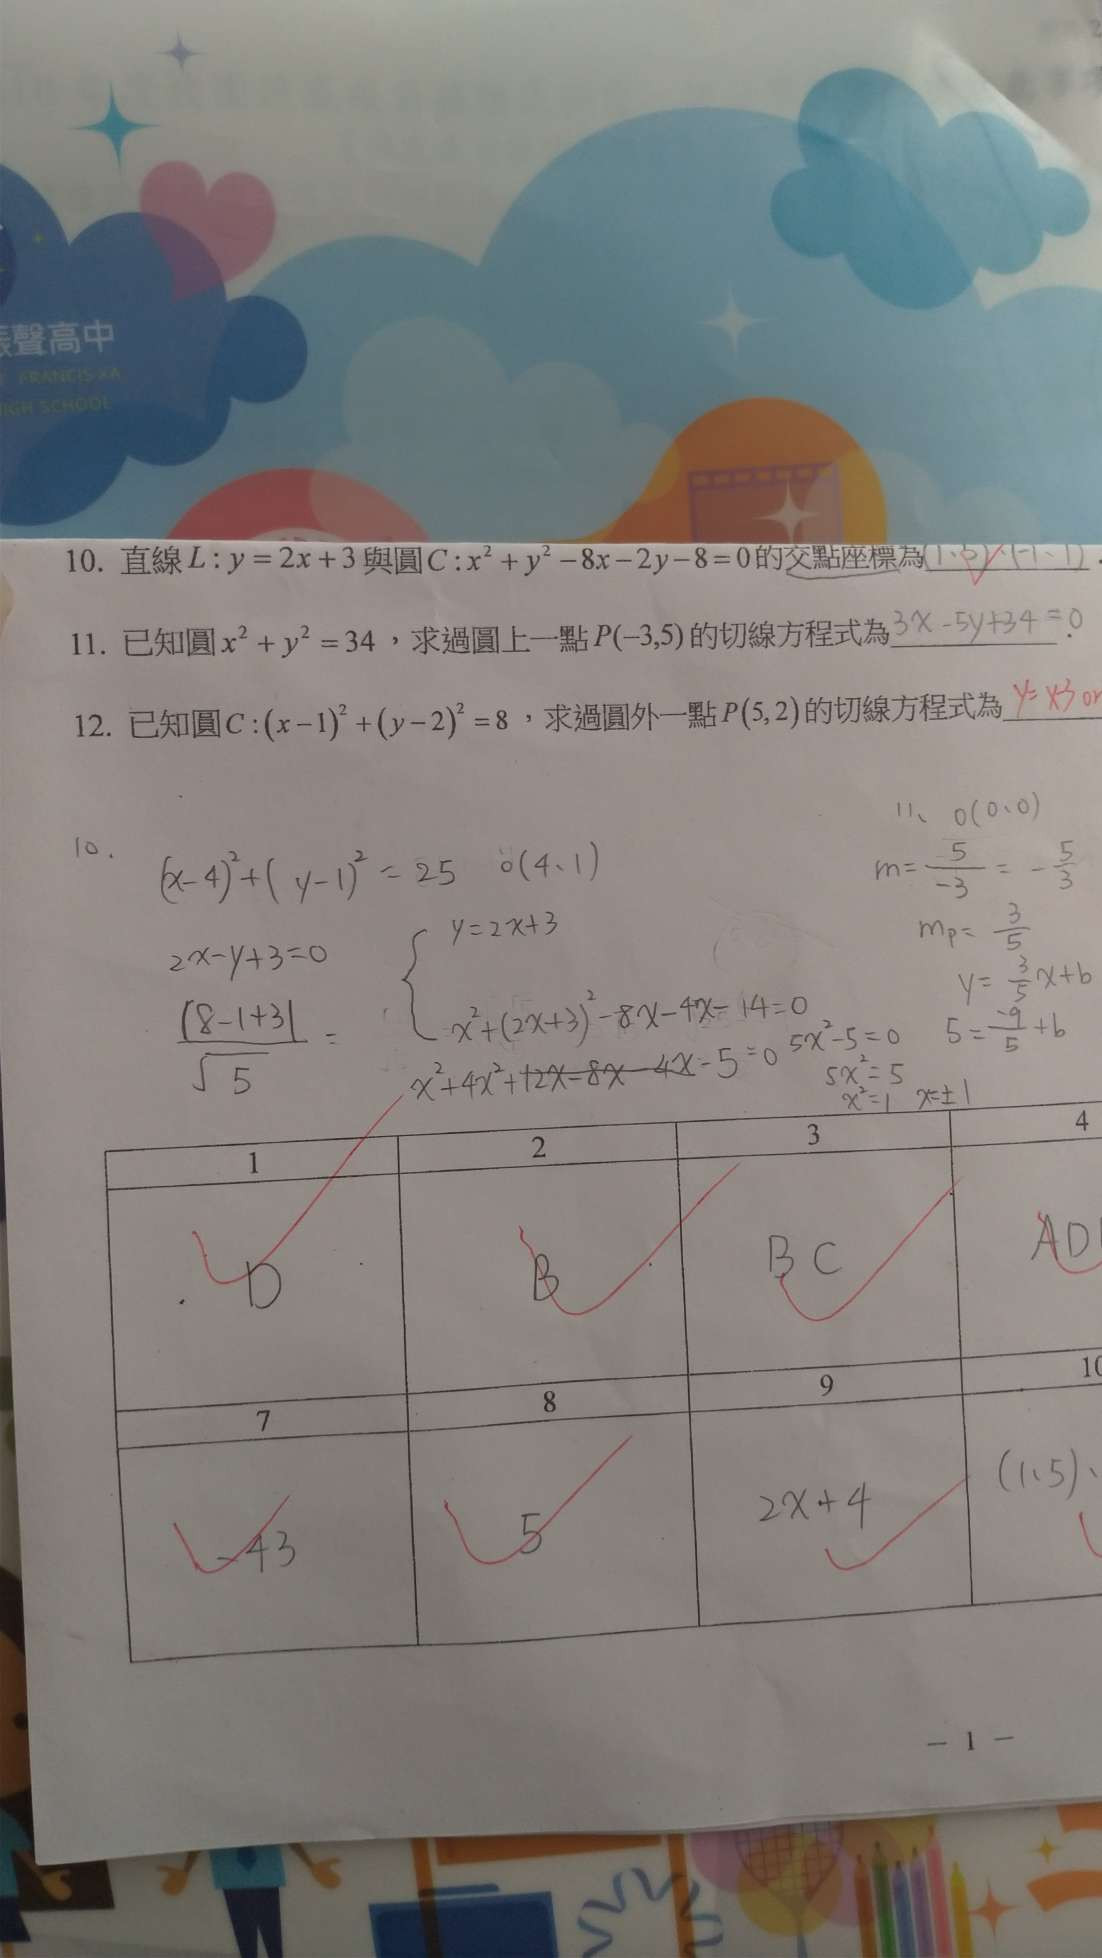 張聲高中
FRANCIS XA
HIGH SCHOOL
10. 直線 L : y = 2x + 3 與圓 C : x² + y² − 8x − 2y − 8 = 0 的交點座標為 (1、5)、(-1、1) .
11. 已知圓 x² + y² = 34 ，求過圓上一點 P(−3,5) 的切線方程式為 3x - 5y + 34 = 0 .
12. 已知圓 C : (x − 1)² + (y − 2)² = 8 ，求過圓外一點 P(5, 2) 的切線方程式為 y = x-3 or
10.
(x-4)² + (y-1)² = 25 o(4、1)
2x-y+3=0
|8-1+3| / √5 =
{ y=2x+3
x²+(2x+3)²-8x-4x-14=0
x²+4x²+12x-8x-4x-5=0
5x²-5=0
5x²=5
x²=1 x=±1
11、 o(0、0)
m = 5/-3 = -5/3
mp = 3/5
y = 3/5 x+b
5 = -9/5 +b
1 2 3 4
D B BC AD
7 8 9 10
-43 5 2x+4 (1、5)、
− 1 −